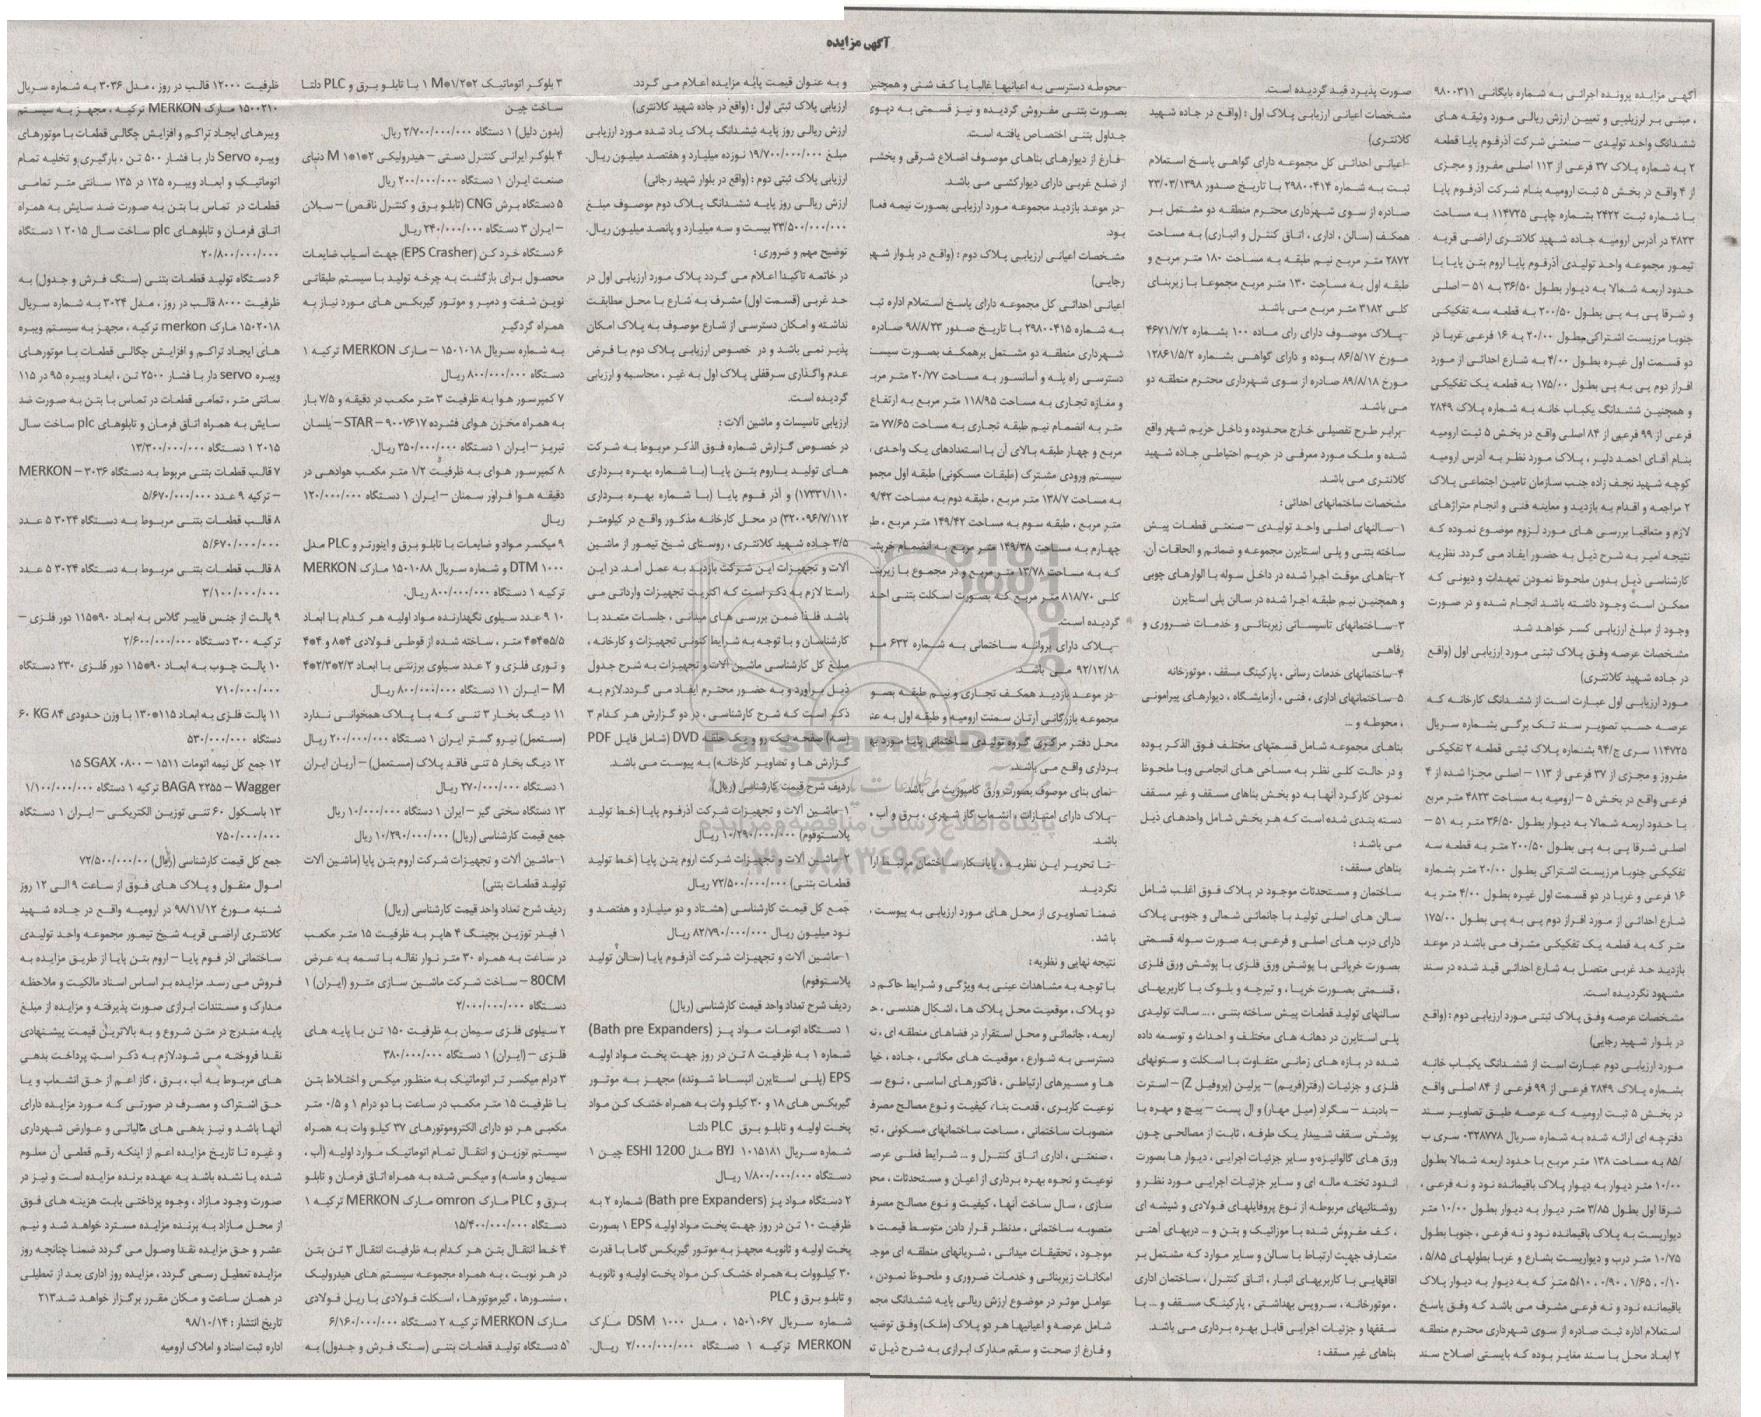 آگهی مزایده
آگهی مزایده پرونده اجرائی به شماره بایگانی ۹۸۰۰۳۱۱
، مبنی بر ارزیابی و تعیین ارزش ریالی مورد وثیقه های
ششدانگ واحد تولیدی – صنعتی شرکت آذرفوم پایا قطعه
۲ به شماره پلاک ۳۷ فرعی از ۱۱۳ اصلی مفروز و مجزی
از ۴ واقع در بخش ۵ ثبت ارومیه بنام شرکت آذرفوم پایا
با شماره ثبت ۲۴۲۲ بشماره چاپی ۱۱۴۷۲۵ به مساحت
۴۸۲۳ در آدرس ارومیه جاده شهید کلانتری اراضی قریه
تیمور مجموعه واحد تولیدی آذرفوم پایا اروم بتن پایا با
حدود اربعه شمالا به دیوار بطول ۳۶/۵۰ به ۵۱ – اصلی
و شرقا پی به پی بطول ۲۰۰/۵۰ به قطعه سه تفکیکی
جنوبا مرزیست اشتراکی بطول ۲۰/۰۰ به ۱۶ فرعی غربا در
دو قسمت اول غیره بطول ۴/۰۰ به شارع احداثی از مورد
افراز دوم پی به پی بطول ۱۷۵/۰۰ به قطعه یک تفکیکی
و همچنین ششدانگ یکباب خانه به شماره پلاک ۲۸۴۹
فرعی از ۹۹ فرعی از ۸۴ اصلی واقع در بخش ۵ ثبت ارومیه
بنام آقای احمد دلیر ، پلاک مورد نظر به آدرس ارومیه
کوچه شهید نجف زاده جنب سازمان تامین اجتماعی پلاک
۲ مراجعه و اقدام به بازدید و معاینه فنی و انجام متراژهای
لازم و متعاقبا بررسی های مورد لزوم موضوع نموده که
نتیجه امیر به شرح ذیل به حضور ایفاد می گردد. نظریه
کارشناسی ذیل بدون ملحوظ نمودن تعهدات و دیونی که
ممکن است وجود داشته باشد انجام شده و در صورت
وجود از مبلغ ارزیابی کسر خواهد شد.
مشخصات عرصه وفق پلاک ثبتی مورد ارزیابی اول (واقع
در جاده شهید کلانتری)
مورد ارزیابی اول عبارت است از ششدانگ کارخانه که
عرصه حسب تصویر سند تک برگی بشماره سریال
۱۱۴۷۲۵ سری ج/۹۴ بشماره پلاک ثبتی قطعه ۲ تفکیکی
مفروز و مجزی از ۳۷ فرعی از ۱۱۳ – اصلی مجزا شده از ۴
فرعی واقع در بخش ۵ – ارومیه به مساحت ۴۸۲۳ متر مربع
با حدود اربعه شمالا به دیوار بطول ۳۶/۵۰ متر به ۵۱ –
اصلی شرقا پی به پی بطول ۲۰۰/۵۰ متر به قطعه سه
تفکیکی جنوبا مرزیست اشتراکی بطول ۲۰/۰۰ متر بشماره
۱۶ فرعی و غربا در دو قسمت اول غیره بطول ۴/۰۰ متر به
شارع احداثی از مورد افراز دوم پی به پی بطول ۱۷۵/۰۰
متر که به قطعه یک تفکیکی مشرف می باشد در موعد
بازدید حد غربی متصل به شارع احداثی قید شده در سند
مشهود نگردیده است.
مشخصات عرصه وفق پلاک ثبتی مورد ارزیابی دوم : (واقع
در بلوار شهید رجایی)
مورد ارزیابی دوم عبارت است از ششدانگ یکباب خانه
بشماره پلاک ۲۸۴۹ فرعی از ۹۹ فرعی از ۸۴ اصلی واقع
در بخش ۵ ثبت ارومیه که عرصه طبق تصاویر سند
دفترچه ای ارائه شده به شماره سریال ۰۳۲۸۷۷۸ سری ب
/۸۵ به مساحت ۱۳۸ متر مربع با حدود اربعه شمالا بطول
۱۰/۰۰ متر دیوار به دیوار پلاک باقیمانده نود و نه فرعی ،
شرقا اول بطول ۳/۸۵ متر دیوار به دیوار بطول ۱۰/۰۰ متر
دیواریست به پلاک باقیمانده نود و نه فرعی ، جنوبا بطول
۱۰/۷۵ متر درب و دیواریست بشارع و غربا بطولهای ۵/۸۵ ،
۰/۱۰ ، ۱/۶۵ ، ۰/۹۰ ، ۵/۱۰ متر که به دیوار به دیوار پلاک
باقیمانده نود و نه فرعی مشرف می باشد که وفق پاسخ
استعلام اداره ثبت صادره از سوی شهرداری محترم منطقه
۲ ابعاد محل با سند مغایر بوده که بایستی اصلاح سند
صورت پذیرد قید گردیده است.
مشخصات اعیانی ارزیابی پلاک اول : (واقع در جاده شهید
کلانتری)
–اعیانی احداثی کل مجموعه دارای گواهی پاسخ استعلام
ثبت به شماره ۲۹۸۰۰۴۱۴ با تاریخ صدور ۲۳/۰۳/۱۳۹۸
صادره از سوی شهرداری محترم منطقه دو مشتمل بر
همکف (سالن ، اداری ، اتاق کنترل و انباری) به مساحت
۲۸۷۲ متر مربع نیم طبقه به مساحت ۱۸۰ متر مربع و
طبقه اول به مساحت ۱۳۰ متر مربع مجموعا با زیربنای
کلی ۳۱۸۲ متر مربع می باشد.
–پلاک موصوف دارای رای ماده ۱۰۰ بشماره ۴۶۷۱/۷/۲
مورخ ۸۶/۵/۱۷ بوده و دارای گواهی بشماره ۱۲۸۶۱/۵/۲
مورخ ۸۹/۸/۱۸ صادره از سوی شهرداری محترم منطقه دو
می باشد.
–برابر طرح تفصیلی خارج محدوده و داخل حریم شهر واقع
شده و ملک مورد معرفی در حریم احتیاطی جاده شهید
کلانتری می باشد.
مشخصات ساختمانهای احداثی :
۱–سالنهای اصلی واحد تولیدی – صنعتی قطعات پیش
ساخته بتنی و پلی استایرن مجموعه و ضمائم و الحاقات آن.
۲–بناهای موقت اجرا شده در داخل سوله با الوارهای چوبی
و همچنین نیم طبقه اجرا شده در سالن پلی استایرن
۳–ساختمانهای تاسیساتی زیربنائی و خدمات ضروری و
رفاهی
۴–ساختمانهای خدمات رسانی ، پارکینگ مسقف ، موتورخانه
۵–ساختمانهای اداری ، فنی ، آزمایشگاه ، دیوارهای پیرامونی
، محوطه و ...
بناهای مجموعه شامل قسمتهای مختلف فوق الذکر بوده
و در حالت کلی نظر به مساحی های انجامی وبا ملحوظ
نمودن کارکرد آنها به دو بخش بناهای مسقف و غیر مسقف
دسته بندی شده است که هر بخش شامل واحدهای ذیل
می باشد :
بناهای مسقف :
ساختمان و مستحدثات موجود در پلاک فوق اغلب شامل
سالن های اصلی تولید با جانمائی شمالی و جنوبی پلاک
دارای درب های اصلی و فرعی به صورت سوله قسمتی
بصورت خرپائی با پوشش ورق فلزی با پوشش ورق فلزی
، قسمتی بصورت خرپا ، و تیرچه و بلوک با کاربریهای
سالنهای تولید قطعات پیش ساخته بتنی ، ... سالت تولیدی
پلی استایرن در دهانه های مختلف و احداث و توسعه داده
شده در بازه های زمانی متفاوت با اسکلت و ستونهای
فلزی و جزئیات (رفتر(فریم) – پرلین (پروفیل Z) – استرت
– بادبند – سگراد (میل مهار) و ال پست – پیچ و مهره با
پوشش سقف شیبدار یک طرفه ، ثابت از مصالحی چون
ورق های گالوانیزه و سایر جزئیات اجرایی ، دیوار ها بصورت
اندود تخته ماله ای و سایر جزئیات اجرایی مورد نظر و
روشنائیهای مربوطه از نوع پروفایلهای فولادی و شیشه ای
، کف مفروش شده با موزائیک و بتن و ... دربهای آهنی
متعارف جهت ارتباط با سالن و سایر موارد که مشتمل بر
اقاقهایی با کاربریهای انبار ، اتاق کنترل ، ساختمان اداری
، موتورخانه ، سرویس بهداشتی ، پارکینگ مسقف و ... با
سقفها و جزئیات اجرایی قابل بهره برداری می باشد.
بناهای غیر مسقف :
–محوطه دسترسی به اعیانیها غالبا با کف شنی و همچنین
بصورت بتنی مفروش گردیده و نیز قسمتی به دپوی
جداول بتنی اختصاص یافته است.
–فارغ از دیوارهای بناهای موصوف اضلاع شرقی و بخشی
از ضلع غربی دارای دیوارکشی می باشد.
–در موعد بازدید مجموعه مورد ارزیابی بصورت نیمه فعال
بود.
مشخصات اعیانی ارزیابی پلاک دوم : (واقع در بلوار شهی
رجایی)
اعیانی احداثی کل مجموعه دارای پاسخ استعلام اداره ثب
به شماره ۲۹۸۰۰۴۱۵ با تاریخ صدور ۹۸/۸/۲۳ صادره
شهرداری منطقه دو مشتمل برهمکف بصورت سیست
دسترسی راه پله و آسانسور به مساحت ۲۰/۷۷ متر مرب
و مغازه تجاری به مساحت ۱۱۸/۹۵ متر مربع به ارتفاع
متر به انضمام نیم طبقه تجاری به مساحت ۷۷/۶۵ مت
مربع و چهار طبقه بالای آن با استعدادهای یک واحدی ،
سیستم ورودی مشترک (طبقات مسکونی) طبقه اول مجمو
به مساحت ۱۳۸/۷ متر مربع ، طبقه دوم به مساحت ۹/۴۲
متر مربع ، طبقه سوم به مساحت ۱۴۹/۴۲ متر مربع ، طب
چهارم به مساحت ۱۴۹/۳۸ متر مربع به انضمام خرپشت
که به مساحت ۱۳/۷۸ متر مربع و در مجموع با زیربنا
کلی ۸۱۸/۷۰ متر مربع که بصورت اسکلت بتنی احد
گردیده است.
–پلاک دارای پروانه ساختمانی به شماره ۶۳۲ مو
۹۲/۱۲/۱۸ می باشد.
–در موعد بازدید همکف تجاری و نیم طبقه بصو
مجموعه بازرگانی آرتان سمنت ارومیه و طبقه اول به عن
محل دفتر مرکزی گروه تولیدی ساختمانی پایا مورد به
برداری واقع می باشد.
–نمای بنای موصوف بصورت ورق کامپوزیت می باشد.
–پلاک دارای امتیازات ، انشعاب گاز شهری ، برق و آب ،
باشد.
–تا تحریر این نظریه ، پایانکار ساختمان مرتبط ارا
نگردید.
ضمنا تصاویری از محل های مورد ارزیابی به پیوست ،
باشد.
نتیجه نهایی و نظریه :
با توجه به مشاهدات عینی به ویژگی و شرایط حاکم د
دو پلاک ، موقعیت محل پلاک ها ، اشکال هندسی ، ح
اربعه ، جانمائی و محل استقرار در فضاهای منطقه ای ، نح
دسترسی به شوارع ، موقعیت های مکانی ، جاده ، خیا
ها و مسیرهای ارتباطی ، فاکتورهای اساسی ، نوع س
نوعیت کاربری ، قدمت بنا، کیفیت و نوع مصالح مصرف
منصوبات ساختمانی ، مساحت ساختمانهای مسکونی ، تج
، صنعتی ، اداری اتاق کنترل و ... شرایط فعلی عرصه
نوعیت و نحوه بهره برداری از اعیان و مستحدثات ، محو
سازی ، سال ساخت آنها ، کیفیت و نوع مصالح مصرف
منصوبه ساختمانی ، مدنظر قرار دادن متوسط قیمت ه
موجود ، تحقیقات میدانی ، شریانهای منطقه ای موجو
امکانات زیربنائی و خدمات ضروری و ملحوظ نمودن ،
عوامل موثر در موضوع ارزش ریالی پایه ششدانگ مجم
شامل عرصه و اعیانیها هر دو پلاک (ملک) وفق توضیح
و فارغ از صحت و سقم مدارک ابرازی به شرح ذیل تع
و به عنوان قیمت پایه مزایده اعلام می گردد.
ارزیابی پلاک ثبتی اول : (واقع در جاده شهید کلانتری)
ارزش ریالی روز پایه ششدانگ پلاک یاد شده مورد ارزیابی
مبلغ ۱۹/۷۰۰/۰۰۰/۰۰۰ نوزده میلیارد و هفتصد میلیون ریال.
ارزیابی پلاک ثبتی دوم : (واقع در بلوار شهید رجائی)
ارزش ریالی روز پایه ششدانگ پلاک دوم موصوف مبلغ
۲۳/۵۰۰/۰۰۰/۰۰۰ بیست و سه میلیارد و پانصد میلیون ریال.
توضیح مهم و ضروری :
در خاتمه تاکیدا اعلام می گردد پلاک مورد ارزیابی اول در
حد غربی (قسمت اول) مشرف به شارع با محل مطابقت
نداشته و امکان دسترسی از شارع موصوف به پلاک امکان
پذیر نمی باشد و در خصوص ارزیابی پلاک دوم با فرض
عدم واگذاری سرقفلی پلاک اول به غیر ، محاسبه و ارزیابی
گردیده است.
ارزیابی تاسیسات و ماشین آلات :
در خصوص گزارش شماره فوق الذکر مربوط به شرکت
های تولید باروم بتن پایا (با شماره بهره برداری
۱۷۳۳۱/۱۱۰) و آذر فوم پایا (با شماره بهره برداری
۳۲۰۰۹۶/۷/۱۱۲) در محل کارخانه مذکور واقع در کیلومتر
۳/۵ جاده شهید کلانتری ، روستای شیخ تیمور از ماشین
آلات و تجهیزات این شرکت بازدید به عمل آمد. در این
راستا لازم به ذکر است که اکثریت تجهیزات وارداتی می
باشد. فلذا ضمن بررسی های میدانی ، جلسات متعدد با
کارشناسان و با توجه به شرایط کنونی تجهیزات و کارخانه ،
مبلغ کل کارشناسی ماشین آلات و تجهیزات به شرح جدول
ذیل برآورد و به حضور محترم ایفاد می گردد.لازم به
ذکر است که شرح کارشناسی ، در دو گزارش هر کدام ۳
(سه) صفحه یک رو و یک حلقه DVD (شامل فایل PDF
گزارش ها و تصاویر کارخانه) به پیوست می باشد.
ردیف شرح قیمت کارشناسی (ریال)
۱–ماشین آلات و تجهیزات شرکت آذرفوم پایا (خط تولید
پلاستوفوم) ۱۰/۲۹۰/۰۰۰/۰۰۰ ریال
۲–ماشین آلات و تجهیزات شرکت اروم بتن پایا (خط تولید
قطعات بتنی) ۷۲/۵۰۰/۰۰۰/۰۰۰ ریال
جمع کل قیمت کارشناسی (هشتاد و دو میلیارد و هفتصد و
نود میلیون ریال ۸۲/۷۹۰/۰۰۰/۰۰۰ ریال
۱–ماشین آلات و تجهیزات شرکت آذرفوم پایا (سالن تولید
پلاستوفوم)
ردیف شرح تعداد واحد قیمت کارشناسی (ریال)
۱ دستگاه اتومات مواد پز (Bath pre Expanders)
شماره ۱ به ظرفیت ۸ تن در روز جهت پخت مواد اولیه
EPS (پلی استایرن انبساط شونده) مجهز به موتور
گیربکس های ۱۸ و ۳۰ کیلو وات به همراه خشک کن مواد
پخت اولیه و تابلو برق PLC دلتا
شماره سریال ۱۰۱۵۱۸۱ BYJ مدل ESHI 1200 چین ۱
دستگاه ۱/۸۰۰/۰۰۰/۰۰۰ ریال
۲ دستگاه مواد پز (Bath pre Expanders) شماره ۲ به
ظرفیت ۱۰ تن در روز جهت پخت مواد اولیه EPS ۱ بصورت
پخت اولیه و ثانویه مجهز به موتور گیربکس گاما با قدرت
۳۰ کیلووات به همراه خشک کن مواد پخت اولیه و ثانویه
و تابلو برق و PLC
شماره سریال ۱۵۰۱۰۶۷ ، مدل DSM ۱۰۰۰ مارک
MERKON ترکیه ۱ دستگاه ۲/۰۰۰/۰۰۰/۰۰۰ ریال.
۳ بلوکر اتوماتیک ۲*۱/۲*۱ M با تابلو برق و PLC دلتا
ساخت چین
(بدون دلیل) ۱ دستگاه ۲/۷۰۰/۰۰۰/۰۰۰ ریال.
۴ بلوکر ایرانی کنترل دستی – هیدرولیکی ۲*۱*۱ M دنیای
صنعت ایران ۱ دستگاه ۲۰۰/۰۰۰/۰۰۰ ریال
۵ دستگاه برش CNG (تابلو برق و کنترل ناقص) – سبلان
– ایران ۳ دستگاه ۲۴۰/۰۰۰/۰۰۰ ریال
۶ دستگاه خرد کن (EPS Crasher) جهت آسیاب ضایعات
محصول برای بازگشت به چرخه تولید با سیستم طبقاتی
نوین شفت و دمپر و موتور گیربکس های مورد نیاز به
همراه گردگیر
به شماره سریال ۱۵۰۱۰۱۸ – مارک MERKON ترکیه ۱
دستگاه ۸۰۰/۰۰۰/۰۰۰ ریال
۷ کمپرسور هوا به ظرفیت ۳ متر مکعب در دقیقه و ۷/۵ بار
به همراه مخزن هوای فشرده STAR – ۹۰۰۷۶۱۷ – یلسان
تبریز – ایران ۱ دستگاه ۳۵۰/۰۰۰/۰۰۰ ریال.
۸ کمپرسور هوای به ظرفیت ۱/۲ متر مکعب هوادهی در
دقیقه هوا فراور سمنان – ایران ۱ دستگاه ۱۲۰/۰۰۰/۰۰۰
ریال
۹ میکسر مواد و ضایعات با تابلو برق و اینورتر و PLC مدل
DTM ۱۰۰۰ و شماره سریال ۱۵۰۱۰۸۸ مارک MERKON
ترکیه ۱ دستگاه ۸۰۰/۰۰۰/۰۰۰ ریال.
۱۰ ۹ عدد سیلوی نگهدارنده مواد اولیه هر کدام با ابعاد
۵/۵*۴*۴ متر ، ساخته شده از قوطی فولادی ۴*۸ و ۴*۴
و توری فلزی و ۲ عدد سیلوی برزنتی با ابعاد ۲/۳*۲*۴
M – ایران ۱۱ دستگاه ۸۰۰/۰۰۰/۰۰۰ ریال
۱۱ دیگ بخار ۳ تنی که با پلاک همخوانی ندارد
(مستعمل) نیرو گستر ایران ۱ دستگاه ۲۰۰/۰۰۰/۰۰۰ ریال
۱۲ دیگ بخار ۵ تنی فاقد پلاک (مستعمل) – آریان ایران
۱ دستگاه ۲۷۰/۰۰۰/۰۰۰ ریال
۱۳ دستگاه سختی گیر – ایران ۱ دستگاه ۱۰/۰۰۰/۰۰۰ ریال
جمع قیمت کارشناسی (ریال) ۱۰/۲۹۰/۰۰۰/۰۰۰ ریال
۱–ماشین آلات و تجهیزات شرکت اروم بتن پایا (ماشین آلات
تولید قطعات بتنی)
ردیف شرح تعداد واحد قیمت کارشناسی (ریال)
۱ فیدر توزین بچینگ ۴ هاپر به ظرفیت ۱۵ متر مکعب
در ساعت به همراه ۳۰ متر نوار نقاله با تسمه به عرض
80CM – ساخت شرکت ماشین سازی مترو (ایران) ۱
دستگاه ۲/۰۰۰/۰۰۰/۰۰۰
۲ سیلوی فلزی سیمان به ظرفیت ۱۵۰ تن با پایه های
فلزی – (ایران) ۱ دستگاه ۳۸۰/۰۰۰/۰۰۰
۳ درام میکسر تر اتوماتیک به منظور میکس و اختلاط بتن
با ظرفیت ۱۵ متر مکعب در ساعت با دو درام ۱ و ۰/۵ متر
مکعبی هر دو دارای الکتروموتورهای ۳۷ کیلو وات به همراه
سیستم توزین و انتقال تمام اتوماتیک موارد اولیه (آب ،
سیمان و ماسه) و میکس شده به همراه اتاق فرمان و تابلو
برق و PLC مارک omron مارک MERKON ترکیه ۱
دستگاه ۱۵/۴۰۰/۰۰۰/۰۰۰
۴ خط انتقال بتن هر کدام به ظرفیت انتقال ۳ تن بتن
در هر نوبت ، به همراه مجموعه سیستم های هیدرولیک
، سنسورها ، گیرموتورها ، اسکلت فولادی با ریل فولادی
مارک MERKON ترکیه ۲ دستگاه ۶/۱۶۰/۰۰۰/۰۰۰
۵ دستگاه تولید قطعات بتنی (سنگ فرش و جدول) به
ظرفیت ۱۲۰۰۰ قالب در روز ، مدل ۳۰۳۶ به شماره سریال
۱۵۰۰۲۱۰ مارک MERKON ترکیه ، مجهز به سیستم
ویبرهای ایجاد تراکم و افزایش چگالی قطعات با موتورهای
ویبره Servo دار با فشار ۵۰۰ تن ، بارگیری و تخلیه تمام
اتوماتیک و ابعاد ویبره ۱۲۵ در ۱۳۵ سانتی متر تمامی
قطعات در تماس با بتن به صورت ضد سایش به همراه
اتاق فرمان و تابلوهای plc ساخت سال ۲۰۱۵ ۱ دستگاه
۲۰/۸۰۰/۰۰۰/۰۰۰
۶ دستگاه تولید قطعات بتنی (سنگ فرش و جدول) به
ظرفیت ۸۰۰۰ قالب در روز ، مدل ۳۰۲۴ به شماره سریال
۱۵۰۲۰۱۸ مارک merkon ترکیه ، مجهز به سیستم ویبره
های ایجاد تراکم و افزایش چگالی قطعات با موتورهای
ویبره servo دار با فشار ۲۵۰۰ تن ، ابعاد ویبره ۹۵ در ۱۱۵
سانتی متر ، تمامی قطعات در تماس با بتن به صورت ضد
سایش به همراه اتاق فرمان و تابلوهای plc ساخت سال
۲۰۱۵ ۱ دستگاه ۱۳/۳۰۰/۰۰۰/۰۰۰
۷ قالب قطعات بتنی مربوط به دستگاه ۳۰۳۶ – MERKON
– ترکیه ۹ عدد ۵/۶۷۰/۰۰۰/۰۰۰
۸ قالب قطعات بتنی مربوط به دستگاه ۳۰۲۴ ۵ عدد
۵/۶۷۰/۰۰۰/۰۰۰
۸ قالب قطعات بتنی مربوط به دستگاه ۳۰۲۴ ۵ عدد
۳/۱۰۰/۰۰۰/۰۰۰
۹ پالت از جنس فایبر گلاس به ابعاد ۹۰*۱۱۵ دور فلزی –
ترکیه ۳۰۰ دستگاه ۲/۶۰۰/۰۰۰/۰۰۰
۱۰ پالت چوب به ابعاد ۹۰*۱۱۵ دور فلزی ۲۳۰ دستگاه
۷۱۰/۰۰۰/۰۰۰
۱۱ پالت فلزی به ابعاد ۱۱۵*۱۳۰ با وزن حدودی ۸۴ KG ۶۰
دستگاه ۵۳۰/۰۰۰/۰۰۰
۱۲ جمع کل نیمه اتومات ۱۵۱۱ – ۰۸۰۰ SGAX ۱۵
BAGA ۲۲۵۵ – Wagger ترکیه ۱ دستگاه ۱/۱۰۰/۰۰۰/۰۰۰
۱۳ باسکول ۶۰ تنی توزین الکتریکی – ایران ۱ دستگاه
۷۵۰/۰۰۰/۰۰۰
جمع کل قیمت کارشناسی (ریال) ۷۲/۵۰۰/۰۰۰/۰۰
اموال منقول و پلاک های فوق از ساعت ۹ الی ۱۲ روز
شنبه مورخ ۹۸/۱۱/۱۲ در ارومیه واقع در جاده شهید
کلانتری اراضی قریه شیخ تیمور مجموعه واحد تولیدی
ساختمانی اذر فوم پایا – اروم بتن پایا از طریق مزایده به
فروش می رسد. مزایده بر اساس اسناد مالکیت و ملاحظه
مدارک و مستندات ابرازی صورت پذیرفته و مزایده از مبلغ
پایه مندرج در متن شروع و به بالاترین قیمت پیشنهادی
نقدا فروخته می شود.لازم به ذکر است پرداخت بدهی
های مربوط به آب ، برق ، گاز اعم از حق انشعاب و یا
حق اشتراک و مصرف در صورتی که مورد مزایده دارای
آنها باشد و نیز بدهی های مالیاتی و عوارض شهرداری
و غیره تا تاریخ مزایده اعم از اینکه رقم قطعی آن معلوم
شده یا نشده باشد به عهده برنده مزایده است و نیز در
صورت وجود مازاد ، وجوه پرداختی بابت هزینه های فوق
از محل مازاد به برنده مزایده مسترد خواهد شد و نیم
عشر و حق مزایده نقدا وصول می گردد ضمنا چنانچه روز
مزایده تعطیل رسمی گردد ، مزایده روز اداری بعد از تعطیلی
در همان ساعت و مکان مقرر برگزار خواهد شد.۲۱۳
تاریخ انتشار : ۹۸/۱۰/۱۴
اداره ثبت اسناد و املاک ارومیه
ParsNamadData
پایگاه اطلاع رسانی مناقصه و مزایده
۰۲۱–۸۸۳۴۹۶۷۰–۵